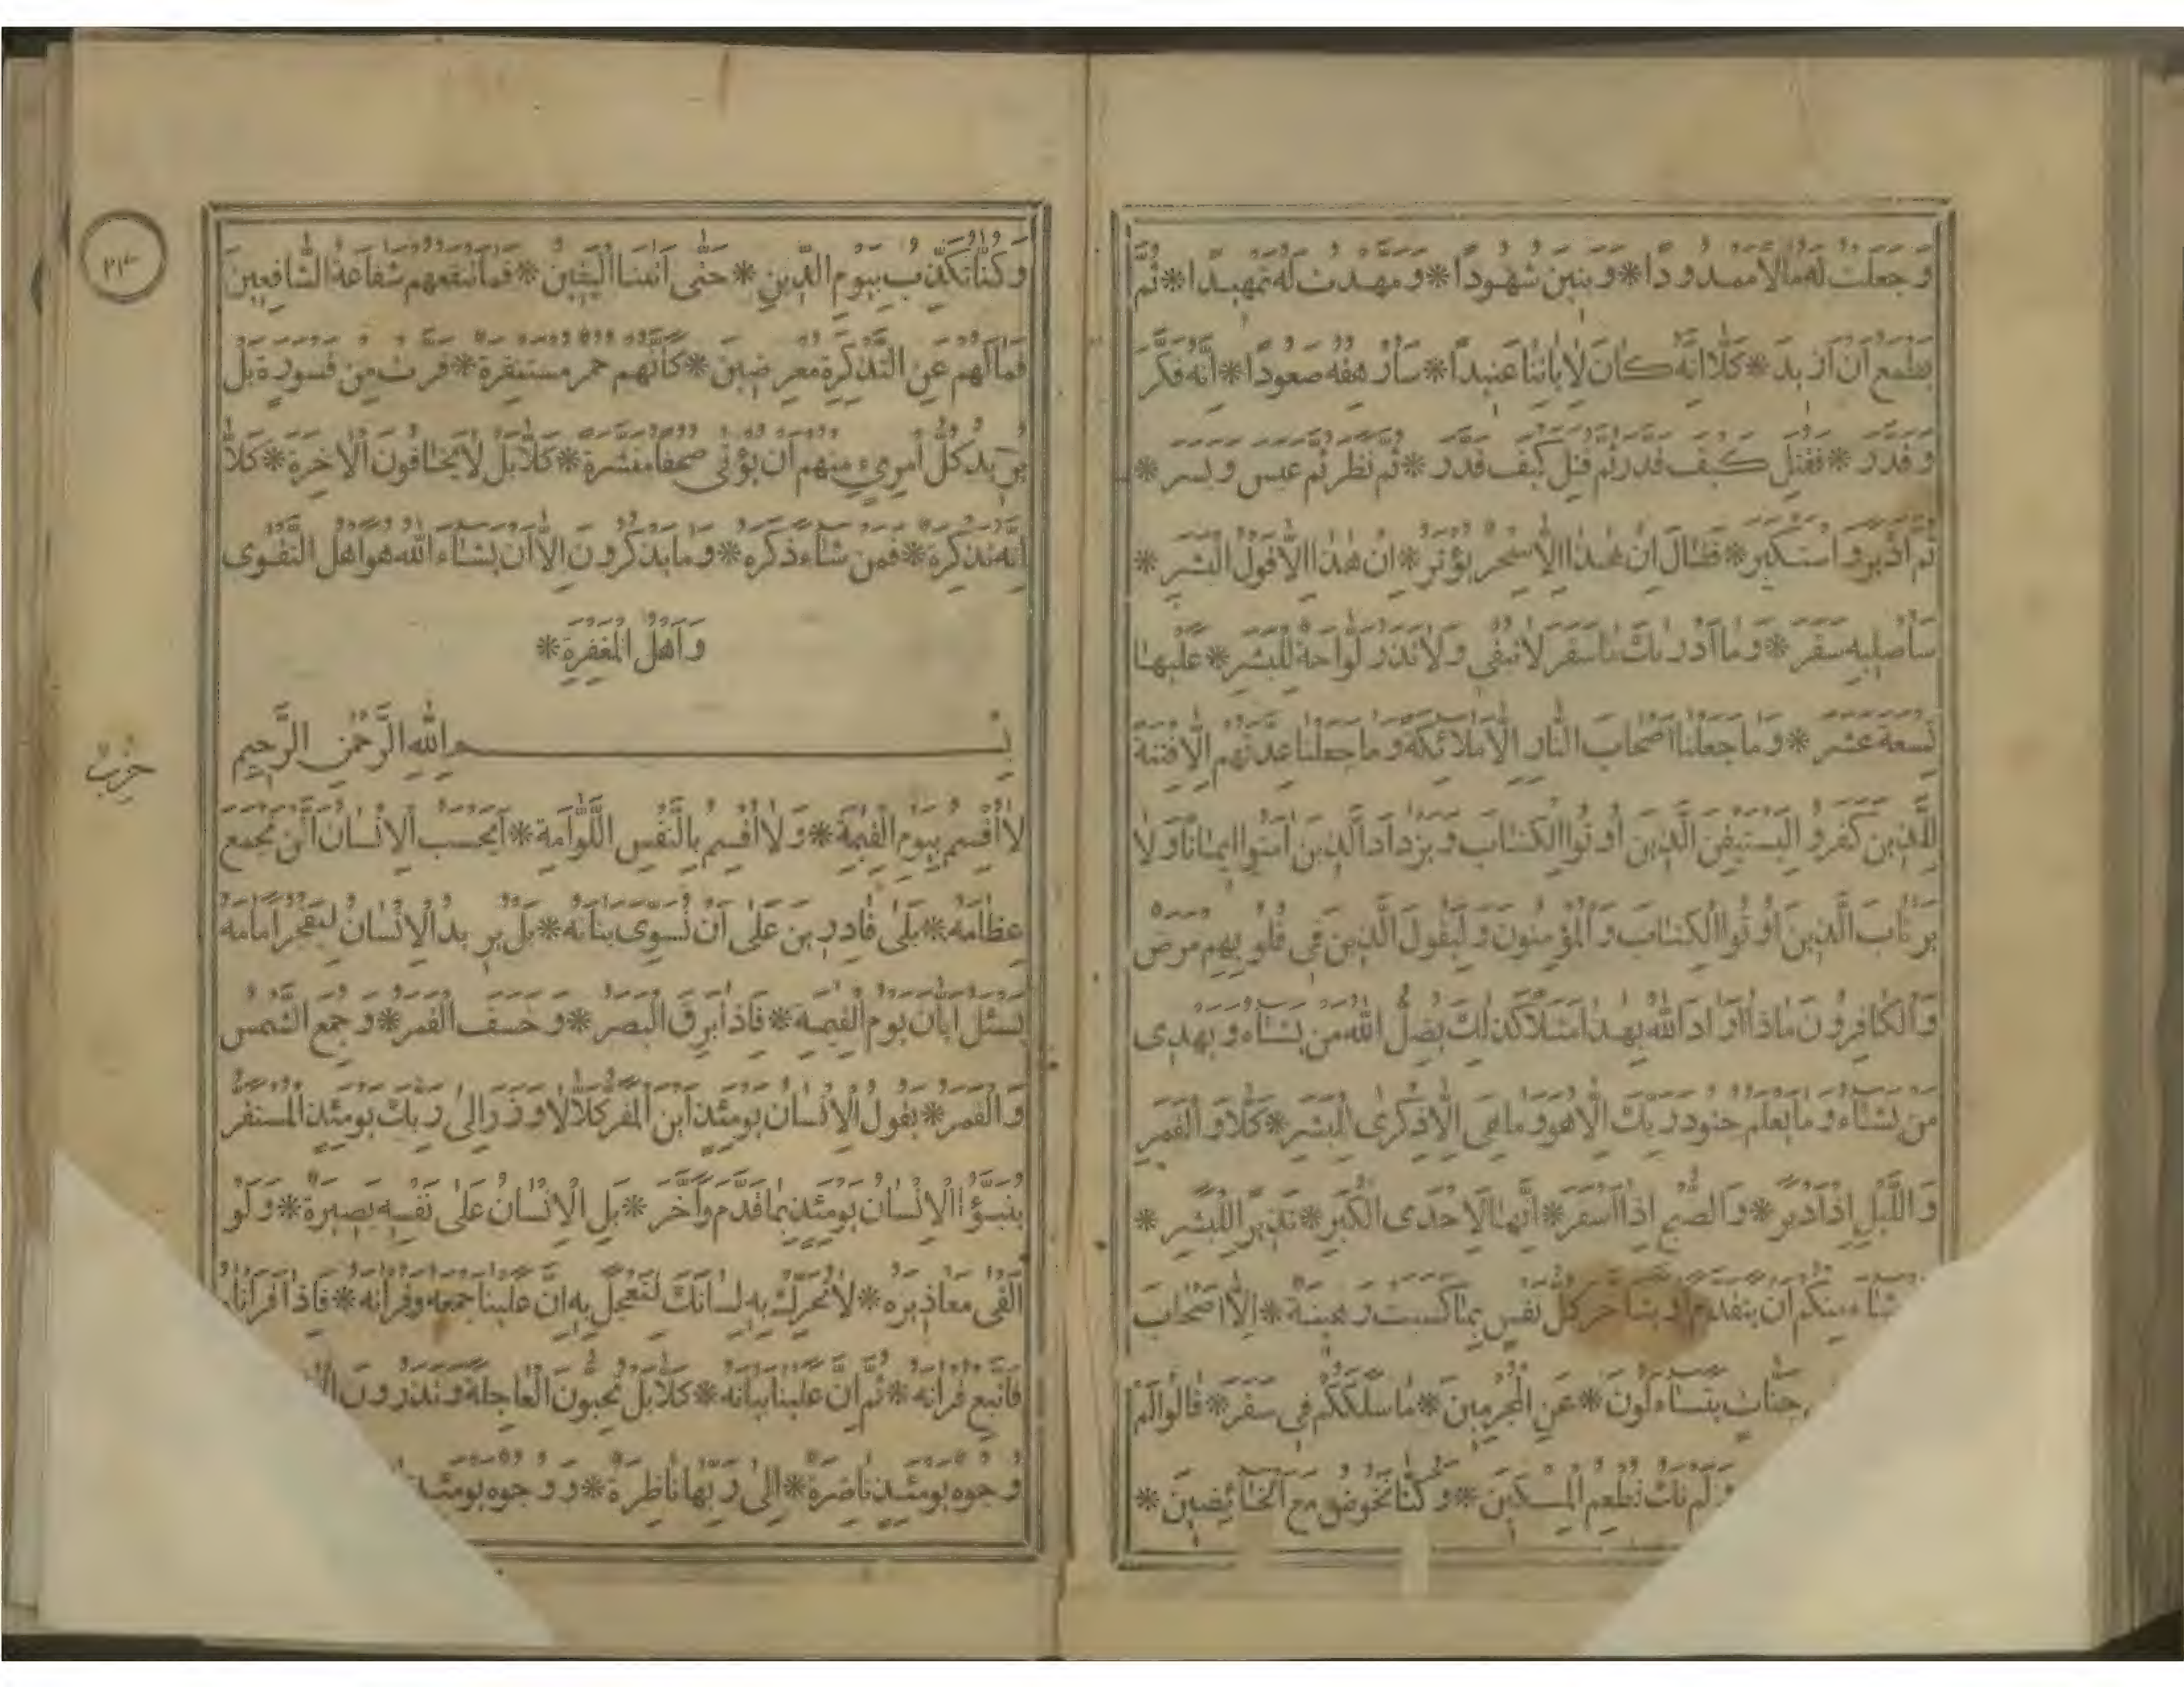 وجعلت له مالا ممدودا * وبنين شهودا * ومهدت له تمهيدا * ثم
يطمع ان ازيد * كلا انه كان لاياتنا عنيدا * سارهقه صعودا * انه فكر
وقدر * فقتل كيف قدر ثم قتل كيف قدر * ثم نظر ثم عبس وبسر *
ثم ادبر واستكبر * فقال ان هذا الا سحر يؤثر * ان هذا الا قول البشر *
ساصليه سقر * وما ادريك ما سقر لا تبقي ولا تذر لواحة للبشر * عليها
تسعة عشر * وما جعلنا اصحاب النار الا ملائكة وما جعلنا عدتهم الا فتنة
للذين كفروا ليستيقن الذين اوتوا الكتاب ويزداد الذين امنوا ايمانا ولا
يرتاب الذين اوتوا الكتاب والمؤمنون وليقول الذين في قلوبهم مرض
والكافرون ماذا اراد الله بهذا مثلا كذلك يضل الله من يشاء ويهدى
من يشاء وما يعلم جنود ربك الا هو وما هي الا ذكرى للبشر * كلا والقمر
والليل اذ ادبر * والصبح اذا اسفر * انها لاحدى الكبر * نذيرا للبشر *
شاء منكم ان يتقدم او يتاخر كل نفس بما كسبت رهينة * الا اصحاب
جنات يتساءلون * عن المجرمين * ما سلككم في سقر * قالوا لم
ولم نك نطعم المسكين * وكنا نخوض مع الخائضين *
٢٣
وكنا نكذب بيوم الدين * حتى اتينا اليقين * فما تنفعهم شفاعة الشافعين
فما لهم عن التذكرة معرضين * كانهم حمر مستنفرة * فرت من قسورة بل
يريد كل امرىء منهم ان يؤتى صحفا منشرة * كلا بل لا يخافون الاخرة * كلا
انه تذكرة * فمن شاء ذكره * وما يذكرون الا ان يشاء الله هو اهل التقوى
واهل المغفرة *
بسم الله الرحمن الرحيم
حزب
لا اقسم بيوم القيمة * ولا اقسم بالنفس اللوامة * ايحسب الانسان الن نجمع
عظامه * بلى قادرين على ان نسوى بنانه * بل يريد الانسان ليفجر امامه
يسئل ايان يوم القيمة * فاذا برق البصر * وخسف القمر * وجمع الشمس
والقمر * يقول الانسان يومئذ اين المفر كلا لا وزر الى ربك يومئذ المستقر
ينبؤا الانسان يومئذ بما قدم واخر * بل الانسان على نفسه بصيرة * ولو
القى معاذيره * لا تحرك به لسانك لتعجل به ان علينا جمعه وقرانه * فاذا قراناه
فاتبع قرانه * ثم ان علينا بيانه * كلا بل تحبون العاجلة وتذرون
وجوه يومئذ ناضرة * الى ربها ناظرة * ووجوه يومئذ